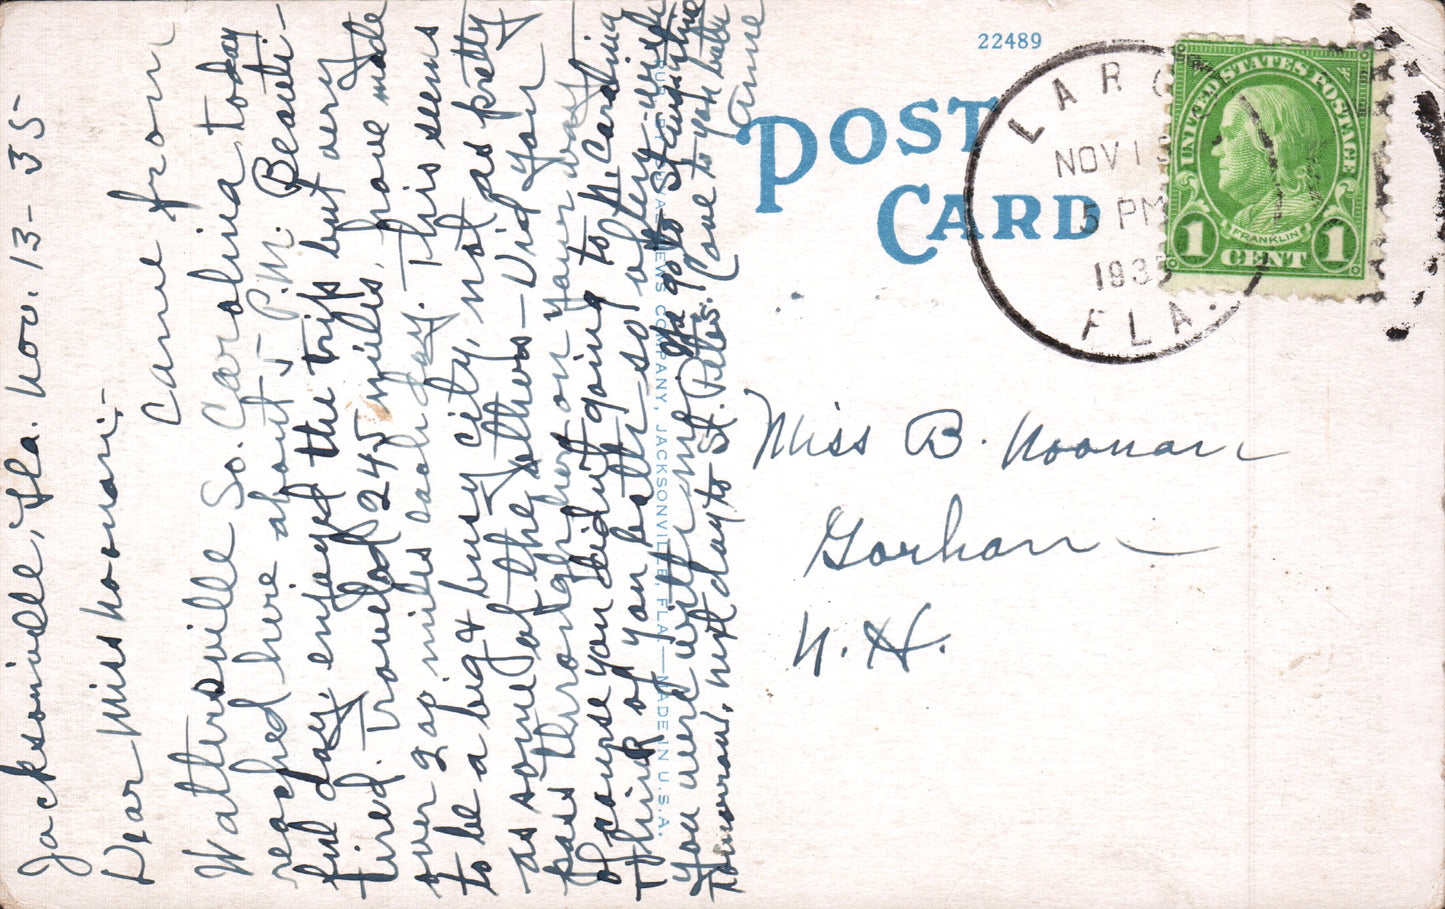 Jacksonville, Fla. Nov. 13-35
Dear Miss Noonan:-
Came from
Wattersville So. Carolina today
reached here about 5 P.M. Beauti-
ful day, enjoyed the trip but very
tired. Traveled 245 miles, have made
over 200 miles each day. This seems
to be a big & busy city, not as pretty
as some of the others - Did you
pass through here on your way
of course you didn't going to N. Carolina
Think of you both so often, wish
You were with me. We go to St. Augustine
tomorrow, next day to St. Petes. Love to you both
Anne
22489
POST
CARD
NEWS COMPANY, JACKSONVILLE, FLA.—MADE IN U.S.A.
LARGO
NOV 1
5 PM
193
FLA.
UNITED STATES POSTAGE
FRANKLIN
1 CENT 1
Miss B. Noonan
Gorham
N.H.